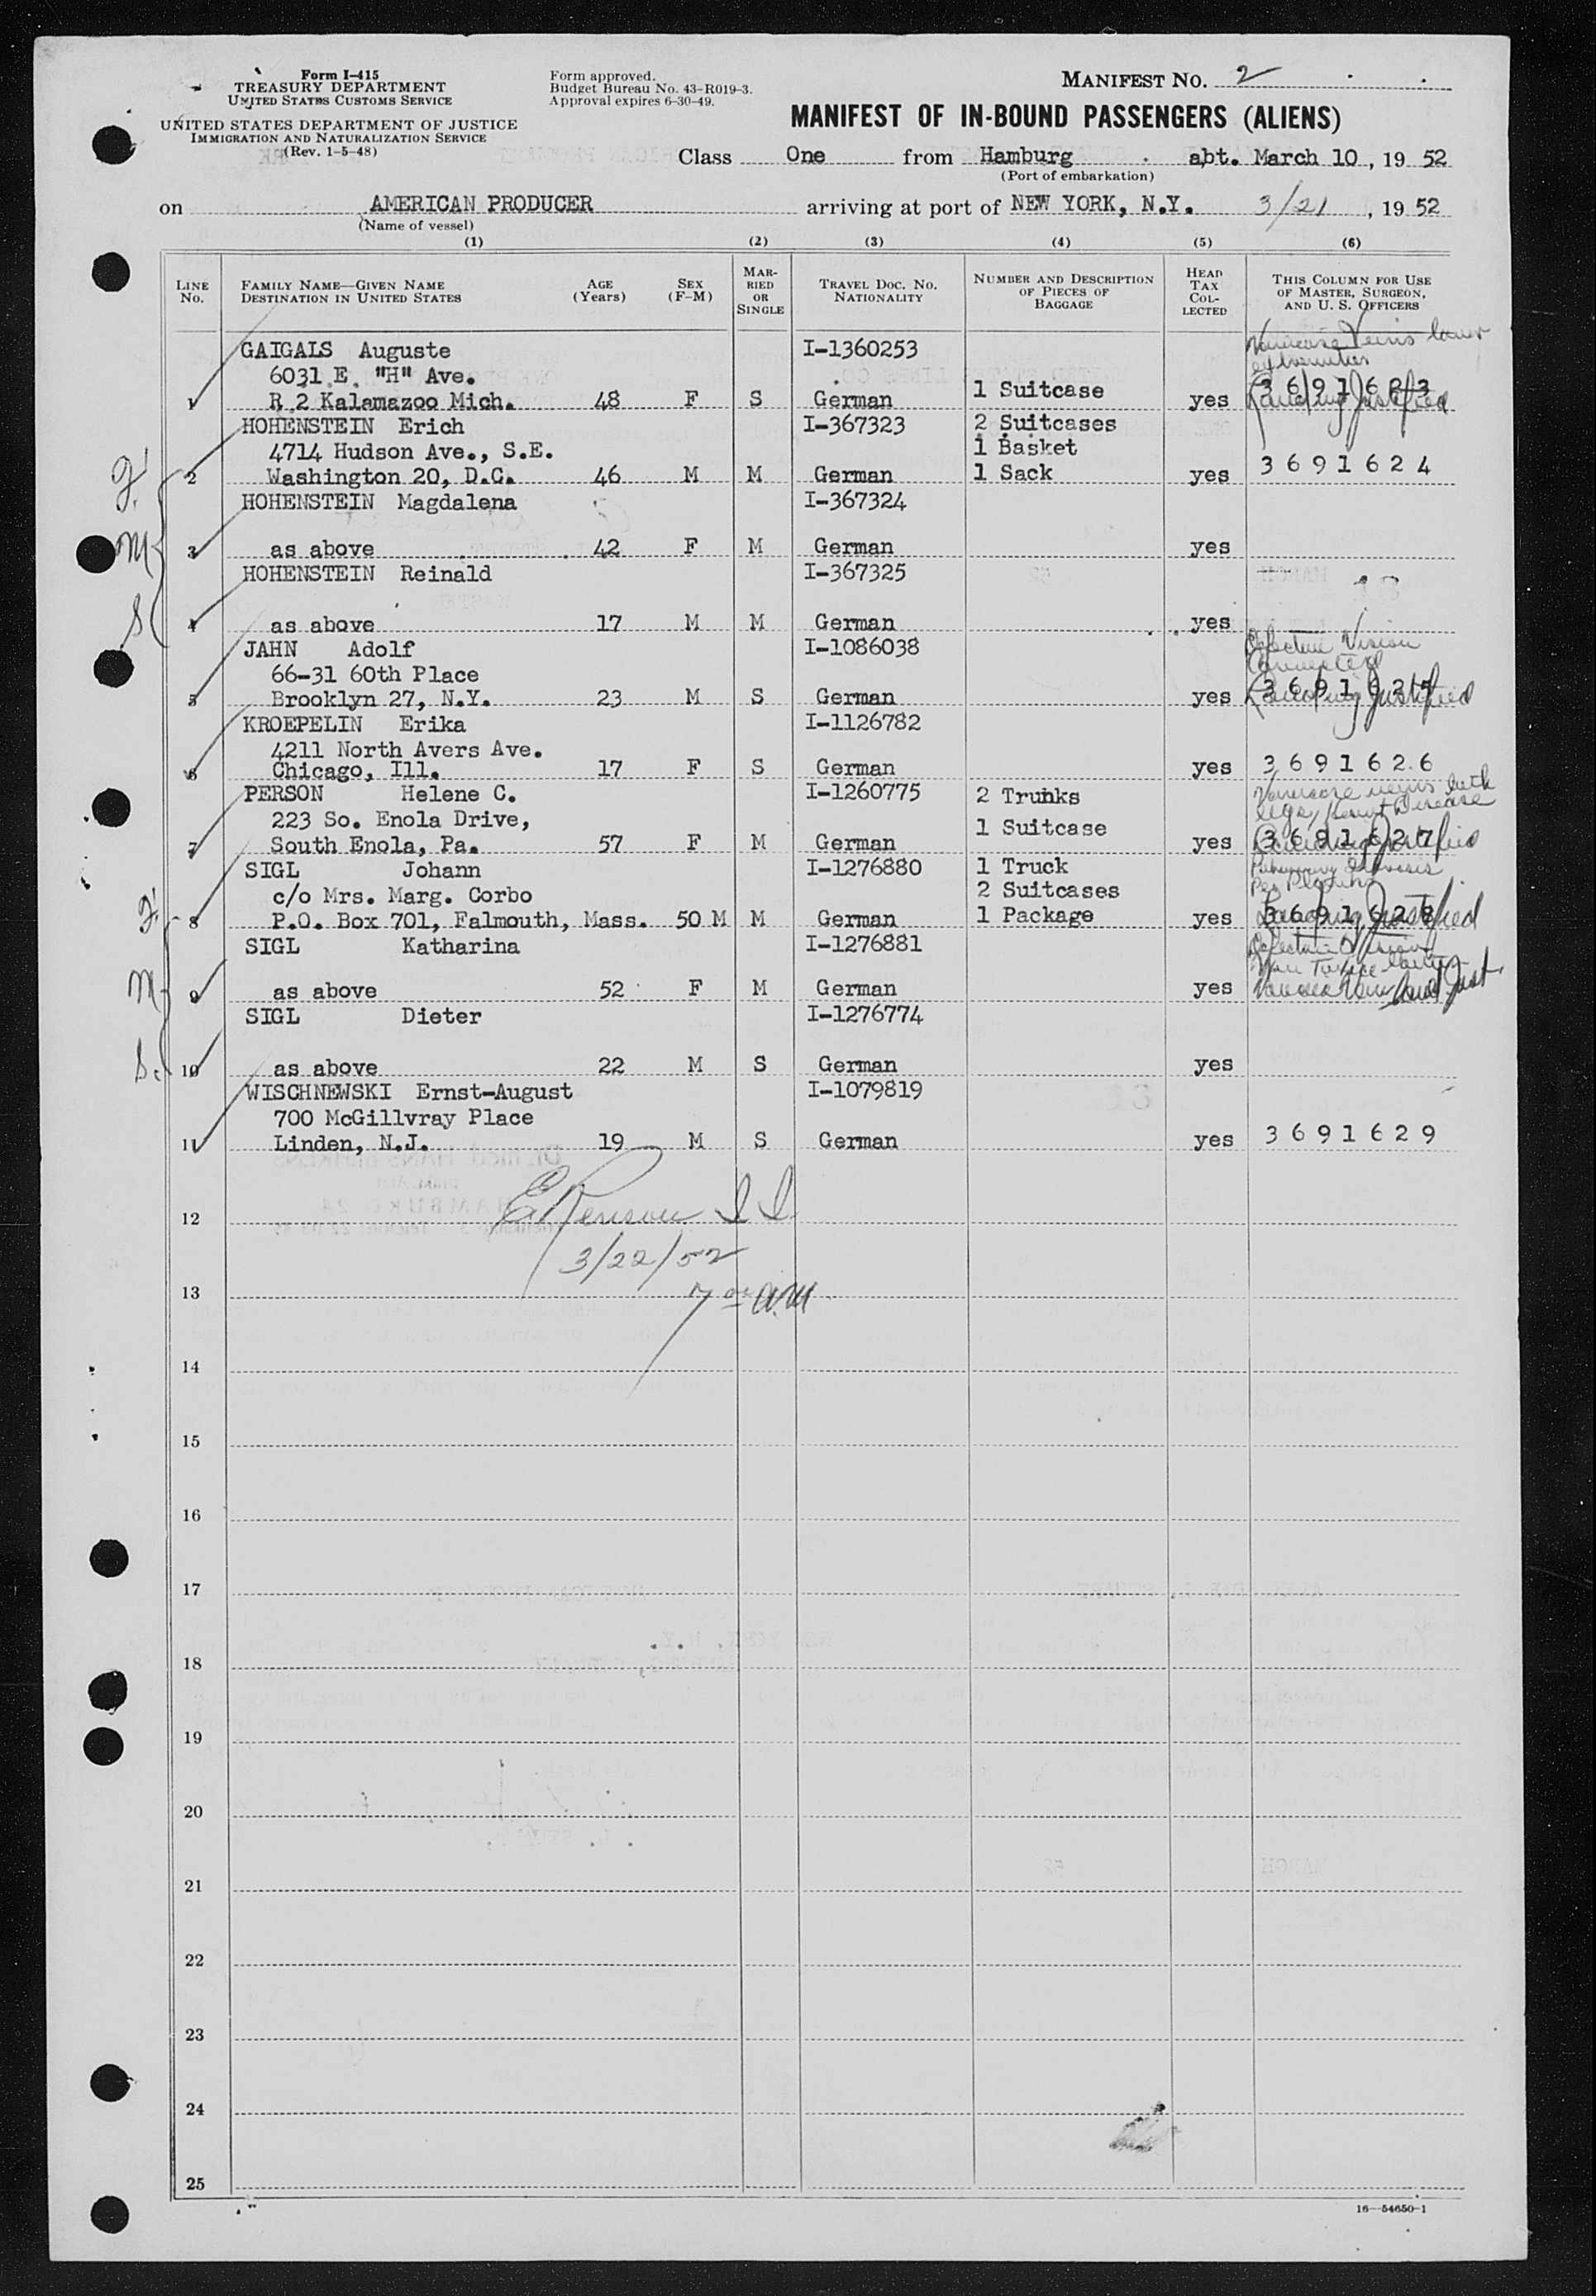 Form I-415
TREASURY DEPARTMENT
UNITED STATES CUSTOMS SERVICE
UNITED STATES DEPARTMENT OF JUSTICE
IMMIGRATION AND NATURALIZATION SERVICE
(Rev. 1-5-48)
Form approved.
Budget Bureau No. 43-R019-3.
Approval expires 6-30-49.
MANIFEST NO. 2
MANIFEST OF IN-BOUND PASSENGERS (ALIENS)
Class One from Hamburg abt. March 10, 19 52
(Port of embarkation)
on AMERICAN PRODUCER arriving at port of NEW YORK, N.Y. 3/21, 19 52
(Name of vessel)
(1) (2) (3) (4) (5) (6)
LINE No. FAMILY NAME—GIVEN NAME DESTINATION IN UNITED STATES AGE (Years) SEX (F-M) MARRIED OR SINGLE TRAVEL DOC. NO. NATIONALITY NUMBER AND DESCRIPTION OF PIECES OF BAGGAGE HEAD TAX COLLECTED THIS COLUMN FOR USE OF MASTER, SURGEON, AND U. S. OFFICERS
GAIGALS Auguste I-1360253 Varicose Veins lower
6031 E. "H" Ave. extremities
1 R 2 Kalamazoo Mich. 48 F S German 1 Suitcase yes 3691623 Landing Justified
HOHENSTEIN Erich I-367323 2 Suitcases
4714 Hudson Ave., S.E. 1 Basket
2 Washington 20, D.C. 46 M M German 1 Sack yes 3691624
HOHENSTEIN Magdalena I-367324
3 as above 42 F M German yes
HOHENSTEIN Reinald I-367325
4 as above 17 M M German yes
JAHN Adolf I-1086038 Defective Vision
66-31 60th Place Corrected
5 Brooklyn 27, N.Y. 23 M S German yes 3691625 Landing Justified
KROEPELIN Erika I-1126782
4211 North Avers Ave.
6 Chicago, Ill. 17 F S German yes 3691626
PERSON Helene C. I-1260775 2 Trunks Varicose veins both
223 So. Enola Drive, legs, Heart Disease
7 South Enola, Pa. 57 F M German 1 Suitcase yes 3691627 Landing Justified
SIGL Johann I-1276880 1 Truck
c/o Mrs. Marg. Corbo 2 Suitcases
8 P.O. Box 701, Falmouth, Mass. 50 M M German 1 Package yes 3691628 Landing Justified
SIGL Katharina I-1276881 Defective Vision
9 as above 52 F M German yes Land Just.
SIGL Dieter I-1276774
10 as above 22 M S German yes
WISCHNEWSKI Ernst-August I-1079819
700 McGillvray Place
11 Linden, N.J. 19 M S German yes 3691629
F.
M
S
F.
M
S.
12
3/22/52
13 7 00 AM
14
15
16
17
18
19
20
21
22
23
24
25
16—54650-1